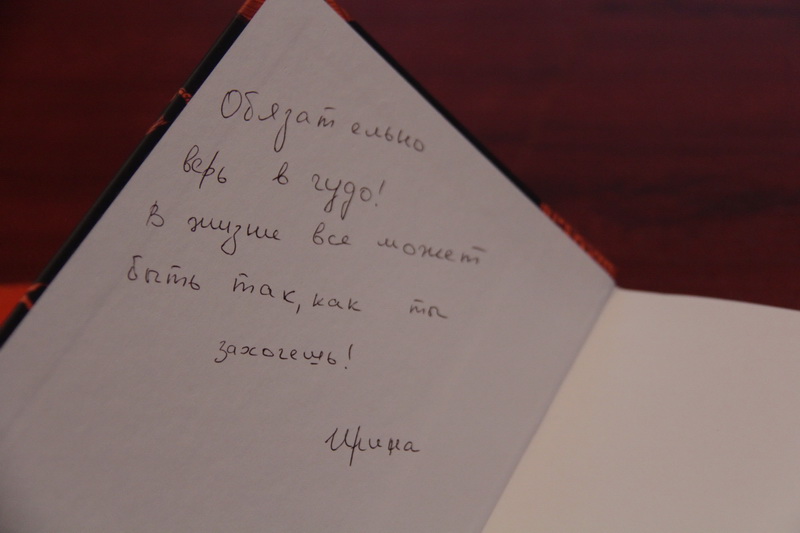 Обязательно
верь в чудо!
В жизни все может
быть так, как ты
захочешь!
Ирина